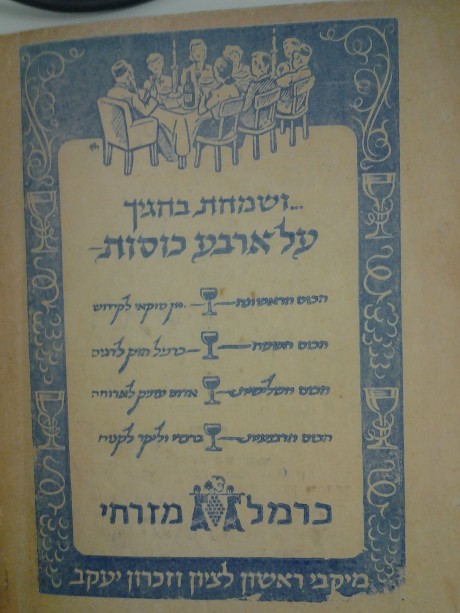 ...ושמחת בחגיך
על ארבע כוסות-
הכוס הראשונה — יין טוקאי לקידוש
הכוס השניה — כרמל הוק לדגים
הכוס השלישית — אדום עתיק לארוחה
הכוס הרביעית — ברנדי וליקר
כרמל מזרחי
מיקבי ראשון לציון וזכרון יעקב